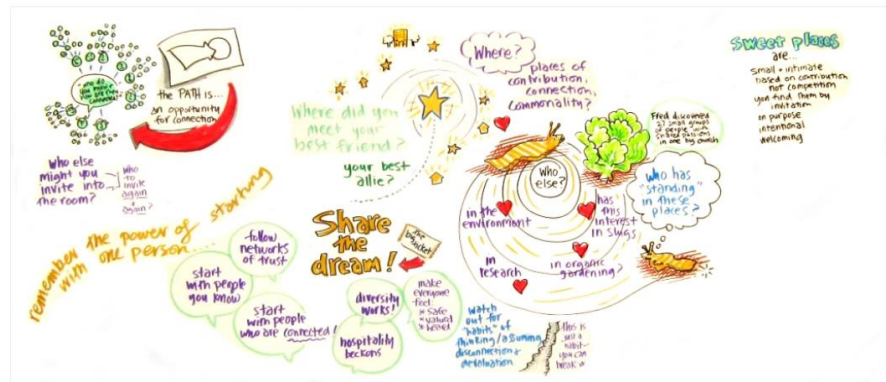 the PATH is...
an opportunity
for connection
Who else
might you
invite into
the room?
who
to
invite
again
&
again?
remember the power of starting
with one person....
follow
networks
of trust
start
with people
you know
start
with people
who are connected!
Where did you
meet your
best friend?
your best
allie?
Share
the
dream!
diversity
works!
hospitality
beckons
make
everyone
feel:
* safe
* valued
* heard
Where?
places of
contribution,
connection,
commonality?
Who
else?
in the
environment
has
this
interest
in slugs
in
research
in organic
gardening?
Fred discovered
27 small groups
of people with
in one
Who has
"standing"
in these
places?
watch
out for
"habits" of
thinking/assuming
disconnection &
devaluation
this is
just a
habit
you can
break it
Sweet places
are...
small + intimate
based on contribution
not competition
you find them by
invitation
on purpose
intentional
welcoming